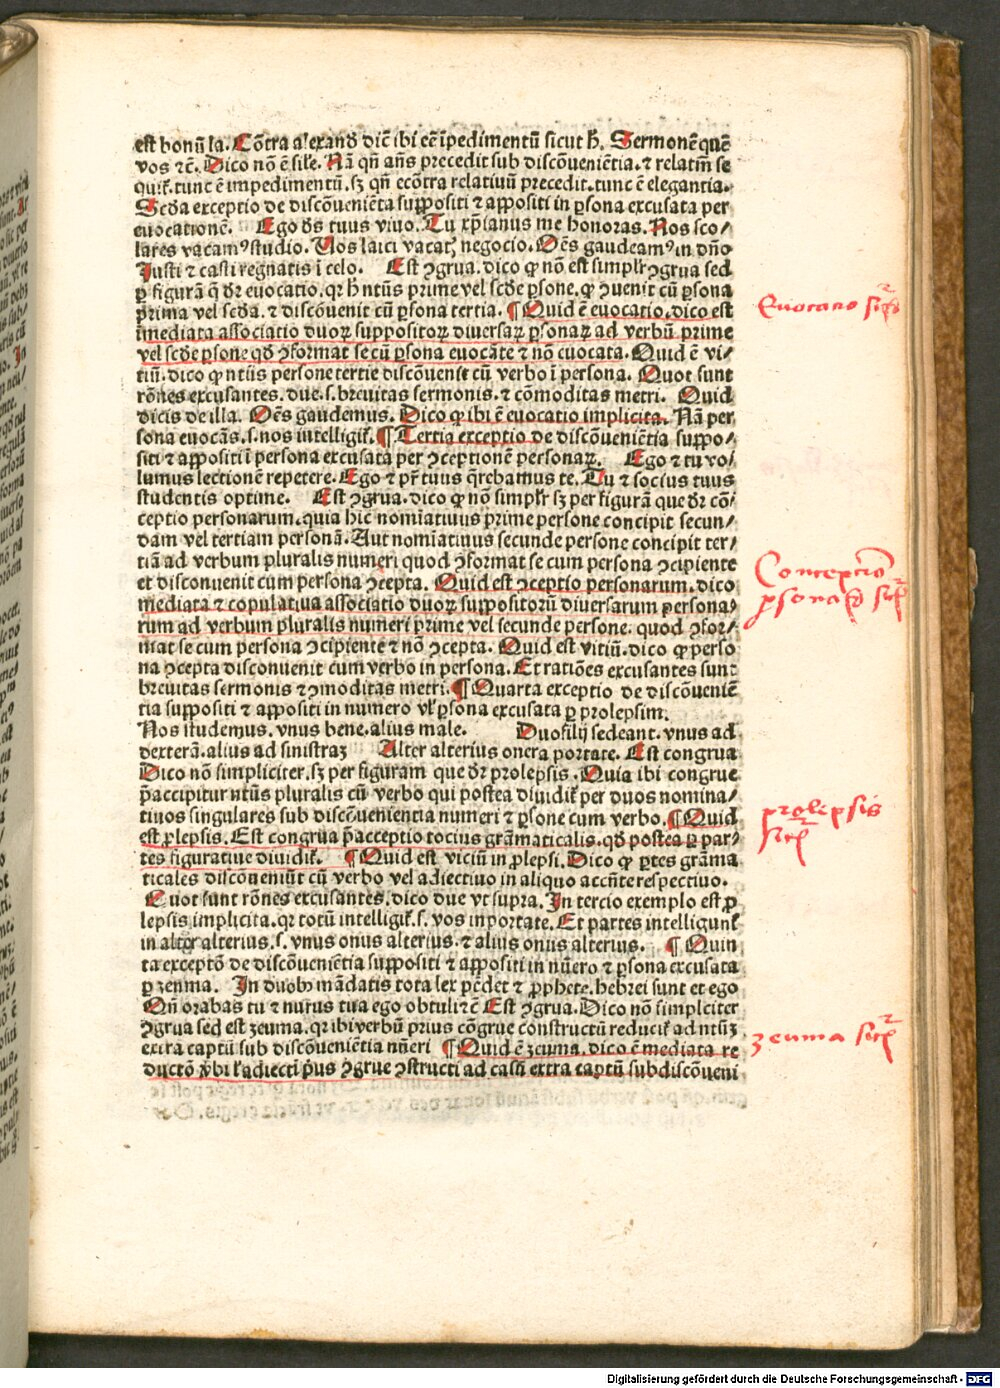 est bonū la. Cōtra alexandꝝ dic̄ ibi eē īpedimentū sicut h̄. Sermonē quē
vos ⁊c̄. Dico nō ē sile. Nā qn̄ an̄s precedit sub discōueniētia. ⁊ relatiū se
quit̄. tunc ē impedimentū. sꝫ qn̄ ecōtra relatiuū precedit. tunc ē elegantia.
Scd̄a exceptio de discōueniēta suppositi ⁊ appositi in ꝑsona excusata per
euocationē. Ego d̄s tuus viuo. Tu xp̄ianus me honoras. Nos sco/
lares vacamꝰ studio. Vos laici vacatꝭ negocio. Oēs gaudeamꝰ in dn̄o
Justi ⁊ casti regnatis ī celo. Est ꝯgrua. dico ꝙ nō est simplr̄ ꝯgrua sed
ꝑ figurā q̄ dr̄ euocatio. qꝛ h̄ ntūs prime vel scd̄e ꝑsone. ꝙ ꝯuenit cū ꝑsona
prima vel scd̄a. ⁊ discōuenit cū ꝑsona tertia. ¶ Quid ē euocatio. dico est
īmediata associatio duoꝝ suppositoꝝ diuersaꝝ ꝑsonaꝝ ad verbū prime
vel scd̄e ꝑsone qd̄ ꝯformat se cū ꝑsona euocāte ⁊ nō euocata. Quid ē vi/
tiū. dico ꝙ ntūs persone tertie discōuenit cū verbo ī persona. Quot sunt
rōnes excusantes. due. s. breuitas sermonis. ⁊ cōmoditas metri. Quid
dicis de illa. Oēs gaudemus. Dico ꝙ ibi ē euocatio implicita. Nā per
sona euocās. s. nos intelligit̄. ¶ Tertia exceptio de discōueniētia suppo/
siti ⁊ appositi ī persona excusata per ꝯceptionē personaꝝ. Ego ⁊ tu vo/
lumus lectionē repetere. Ego ⁊ pr̄ tuus q̄rebamus te. Tu ⁊ socius tuus
studentis optime. Est ꝯgrua. dico ꝙ nō simplr̄ sꝫ per figurā que dr̄ cō/
ceptio personarum. quia hic nomīatiuus prime persone concipit secun/
dam vel tertiam personā. Aut nomīatiuus secunde persone concipit ter/
tiā ad verbum pluralis numeri quod ꝯformat se cum persona ꝯcipiente
et disconuenit cum persona ꝯcepta. Quid est ꝯceptio personarum. dico
mediata ⁊ copulatiua associatio duoꝝ suppositorū diuersarum persona/
rum ad verbum pluralis numeri prime vel secunde persone. quod ꝯfor/
mat se cum persona ꝯcipiente ⁊ nō ꝯcepta. Quid est vitiū. dico ꝙ perso
na ꝯcepta disconuenit cum verbo in persona. Et ratiōes excusantes sunt
breuitas sermonis ⁊ ꝯmoditas metri. ¶ Quarta exceptio de discōueniē
tia suppositi ⁊ appositi in numero vl̄ ꝑsona excusata ꝑ prolepsim.
Nos studemus. vnus bene. alius male. Duo filij sedeant. vnus ad
dexterā. alius ad sinistraꝫ Alter alterius onera portate. Est congrua
Dico nō simpliciter. sꝫ per figuram que dr̄ prolepsis. Quia ibi congrue
p̄accipitur ntūs pluralis cū verbo qui postea diuidit̄ per duos nomina/
tiuos singulares sub discōuenientia numeri ⁊ ꝑsone cum verbo. ¶ Quid
est ꝓlepsis. Est congrua p̄acceptio tocius grāmaticalis. qd̄ postea ꝑ par/
tes figuratiue diuidit̄. ¶ Quid est viciū in ꝓlepsi. Dico ꝙ ꝑtes grāma
ticales discōueniūt cū verbo vel adiectiuo in aliquo accn̄te respectiuo.
Quot sunt rōnes excusantes. dico due vt supra. In tercio exemplo est ꝓ
lepsis implicita. qꝛ totū intelligit̄. s. vos inportate. Et partes intelligunt̄
in alter alterius. s. vnus onus alterius. ⁊ alius onus alterius. ¶ Quin
ta exceptō de discōueniētia suppositi ⁊ appositi in nūero ⁊ ꝑsona excusata
ꝑ zeuma. In duobꝰ mādatis tota lex pēdet ⁊ ꝓphete. hebrei sunt et ego
Qn̄ orabas tu ⁊ nurus tua ego obtuli ⁊c̄ Est ꝯgrua. Dico nō simpliciter
ꝯgrua sed est zeuma. qꝛ ibi verbū prius cōgrue constructū reducit̄ ad ntūꝫ
extra captū sub discōuenientia nūeri ¶ Quid ē zeuma. dico ē mediata re
ductō v̄bi l̄ adiecti p̄us ꝯgrue ꝯstructi ad casū extra captū sub discōueni
Euocatio
Conceptio
ꝑsonaꝝ
prolepsis
zeuma